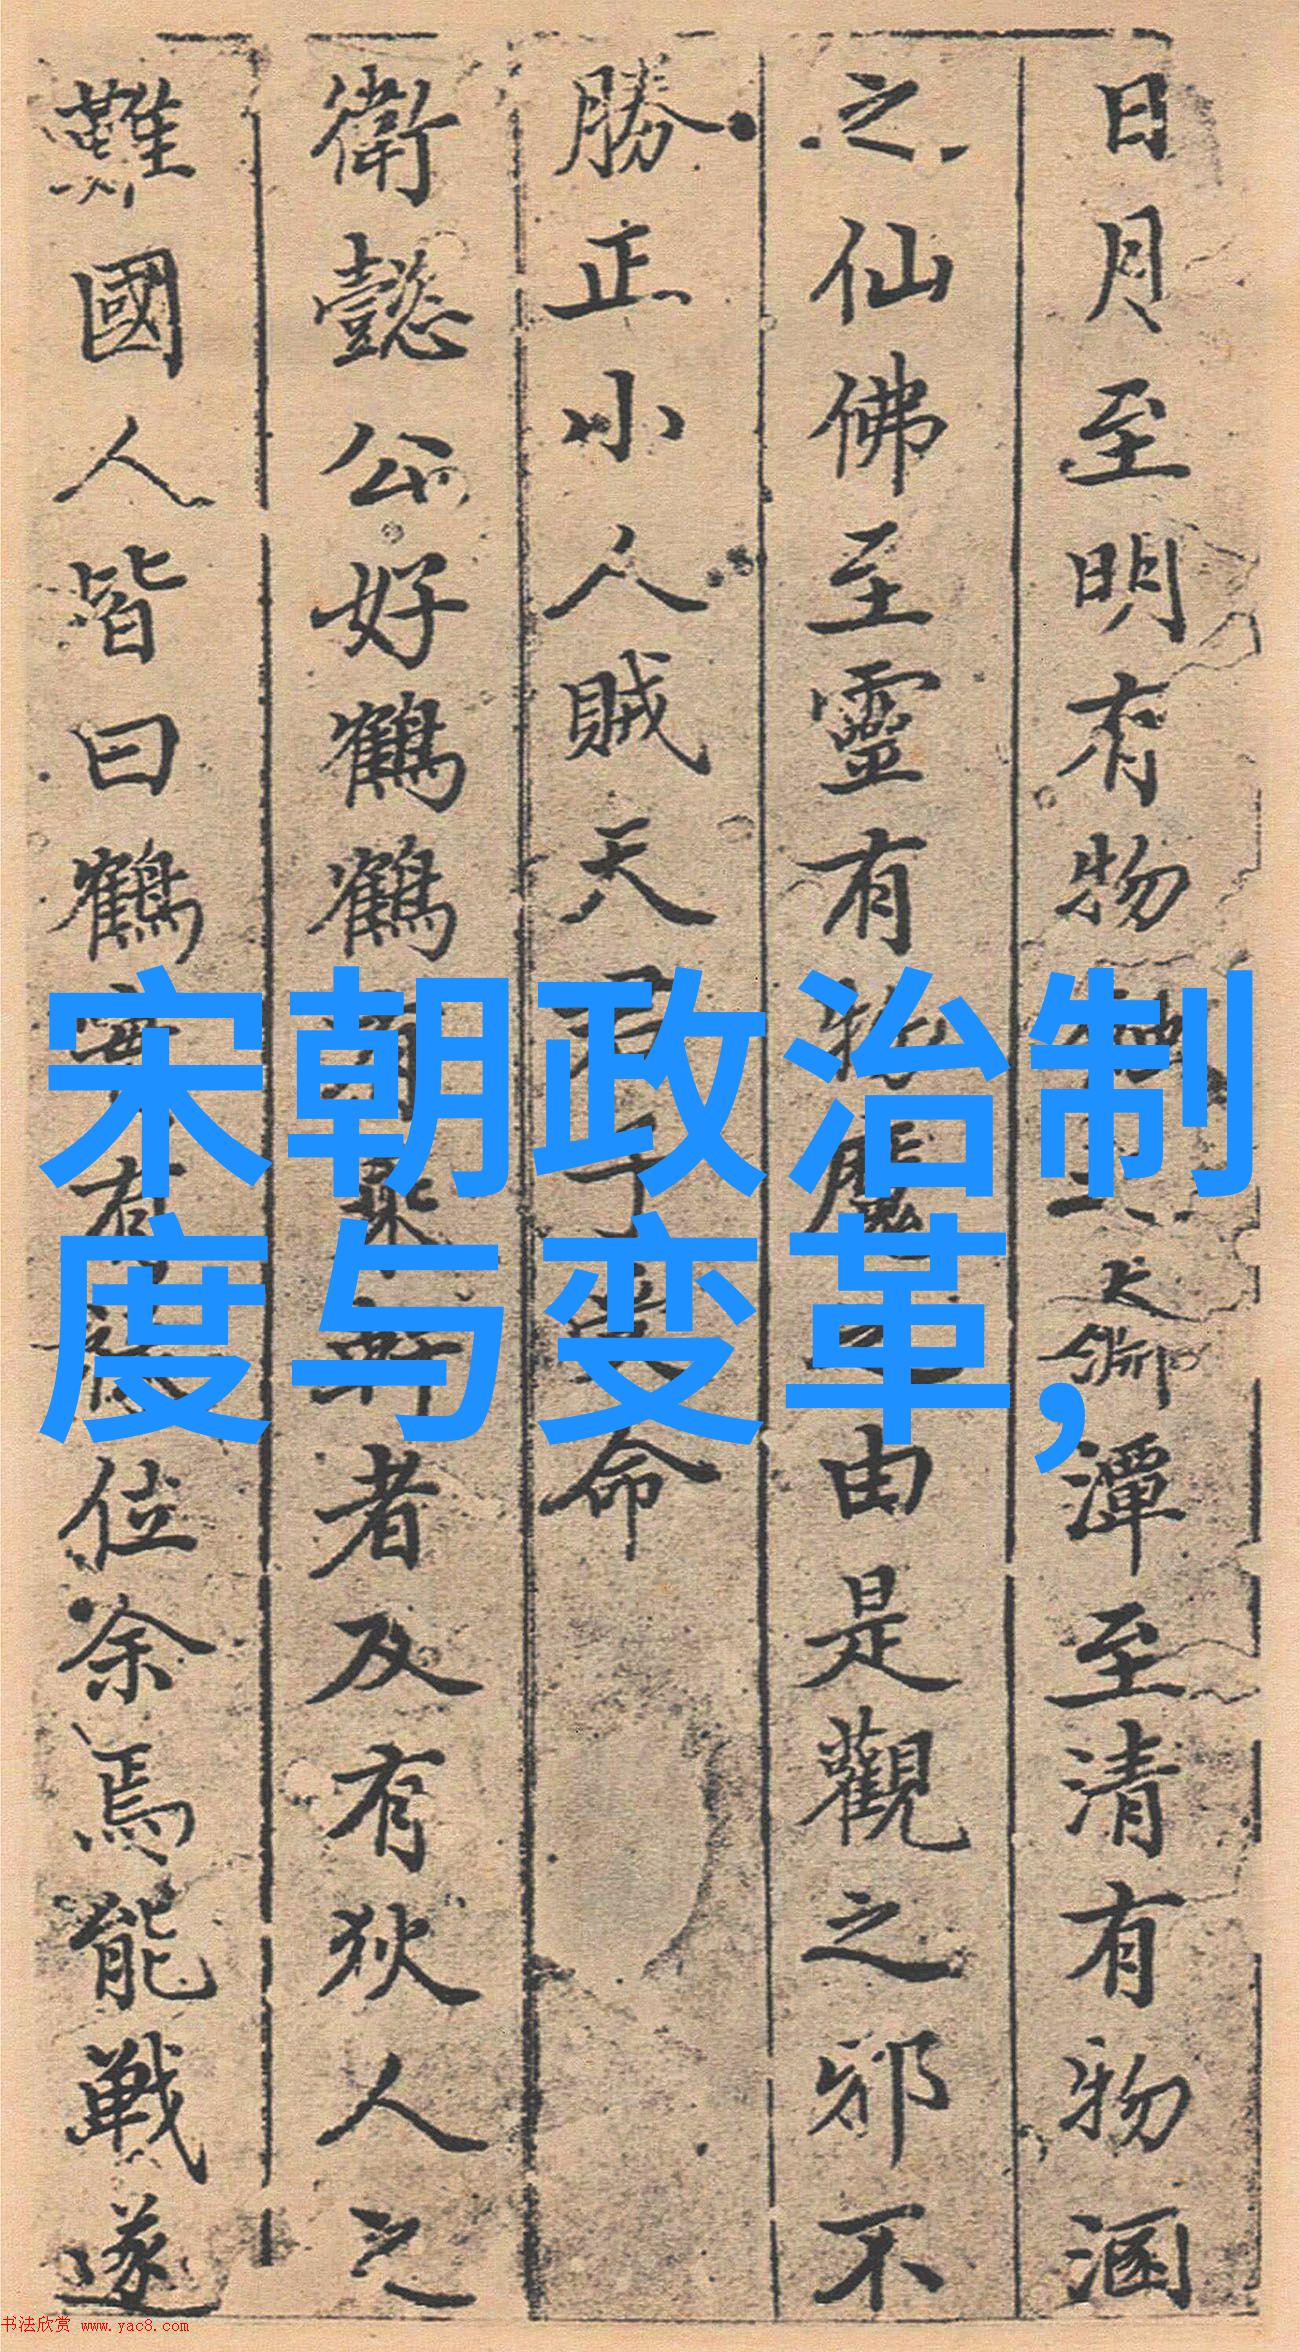 日月至明有物
潭至清有物涵
之仙佛至靈有
由是觀之邪不
勝正小人賊天
命
衛懿公好鶴鶴
者及有狄人之
難國人皆曰鶴
位余焉能戰遂
宋朝政治制
度与变革，
书法欣赏 www.yac8.com